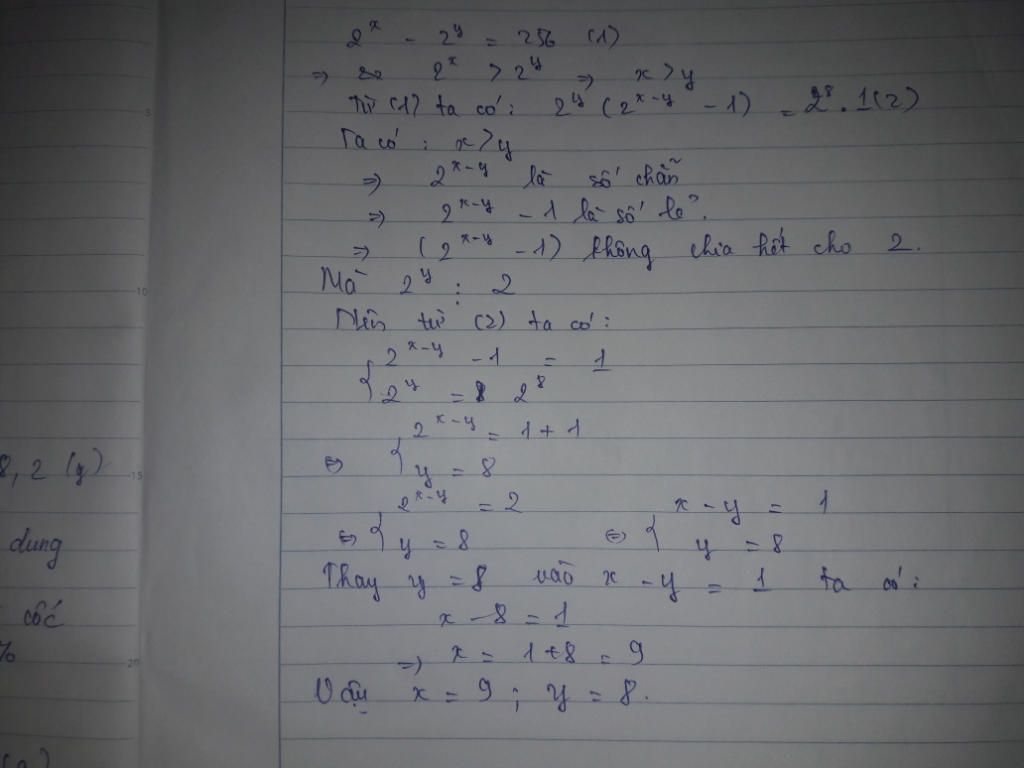 2^x - 2^y = 256 (1)
⇒ 2^x > 2^y ⇒ x > y
Từ (1) ta có: 2^y (2^{x-y} - 1) = 2^8 . 1 (2)
Ta có : x > y
⇒ 2^{x-y} là số chẵn
⇒ 2^{x-y} - 1 là số lẻ.
⇒ (2^{x-y} - 1) không chia hết cho 2.
Mà 2^y ⋮ 2
Nên từ (2) ta có:
{ 2^{x-y} - 1 = 1
2^y = 2^8
2^{x-y} = 1 + 1
⇔ { y = 8
2^{x-y} = 2 x - y = 1
⇔ { y = 8 ⇔ { y = 8
Thay y = 8 vào x - y = 1 ta có:
x - 8 = 1
⇒ x = 1 + 8 = 9
Vậy x = 9 ; y = 8.
8, 2 (g)
dung
cốc
%